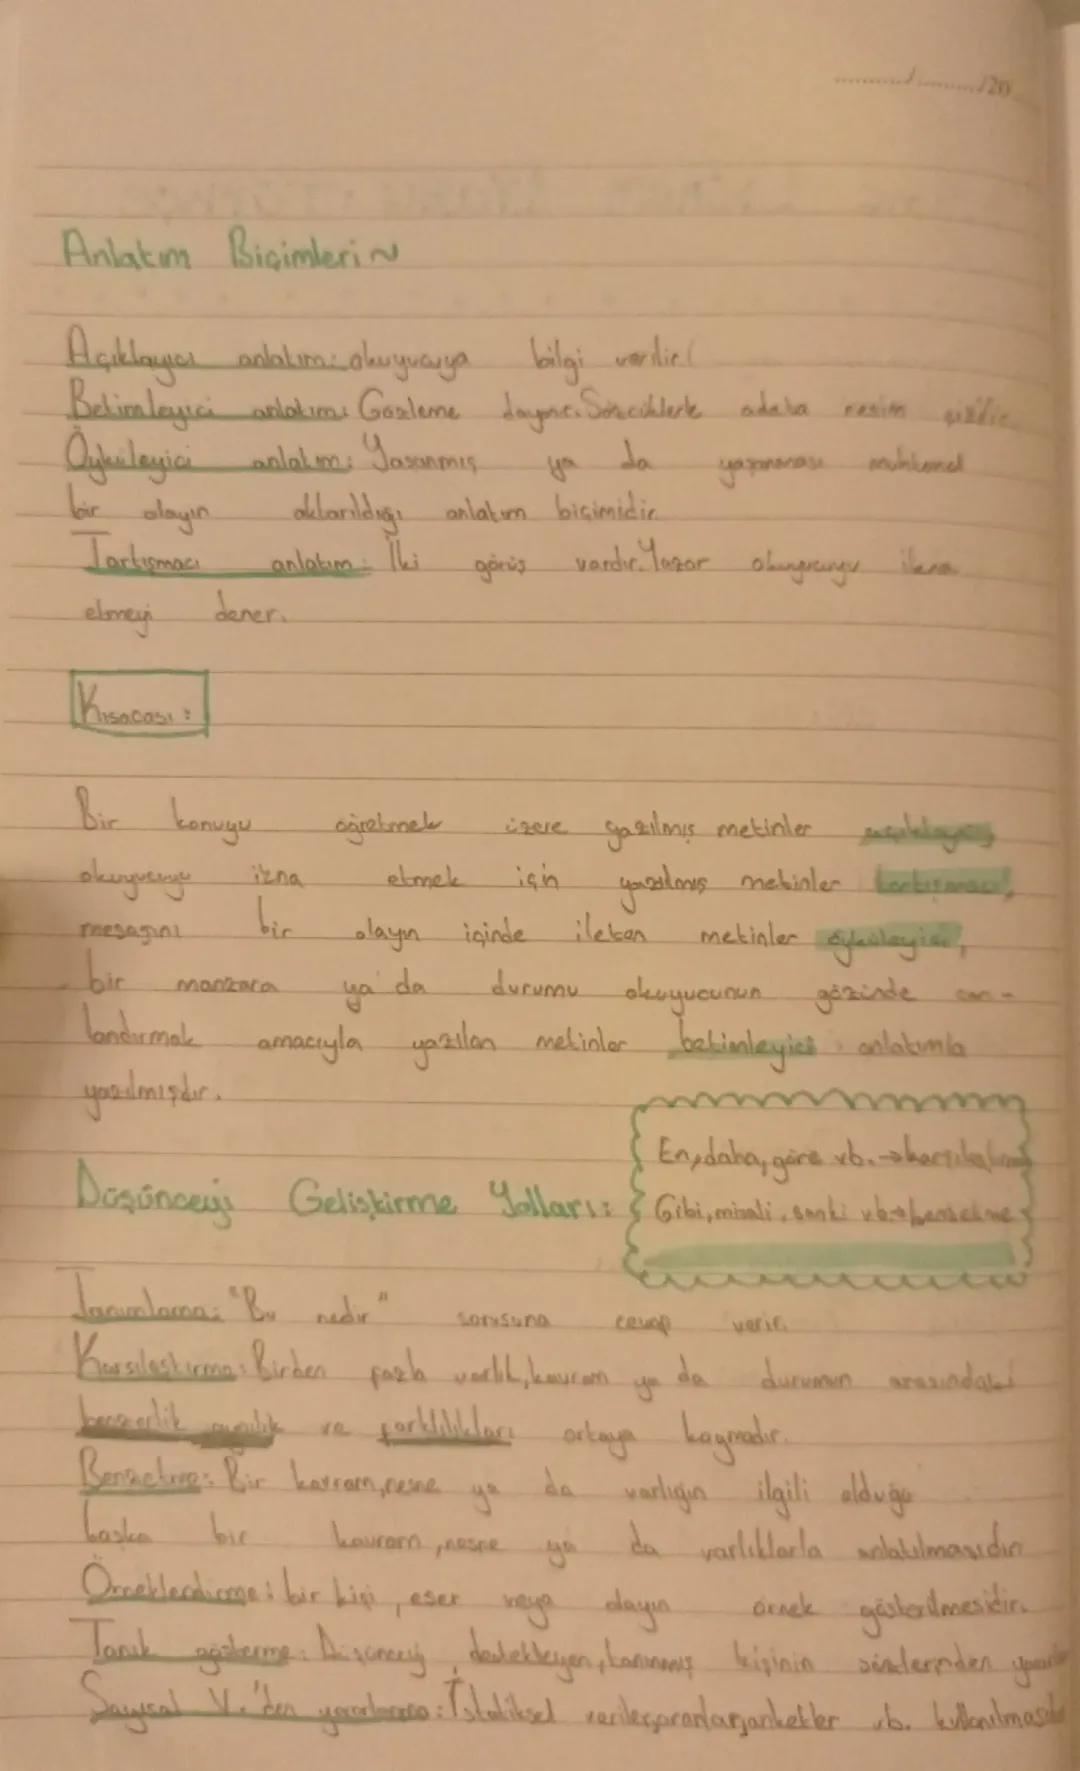 ........./........./20
Anlatım Biçimleri ~
Açıklayıcı anlatım: okuyucuya bilgi verilir.
Betimleyici anlatım: Gözleme dayanır. Sözcüklerle adeta resim çizilir.
Öyküleyici anlatım: Yaşanmış ya da yaşanması muhtemel
bir olayın aktarıldığı anlatım biçimidir.
Tartışmacı anlatım: İki görüş vardır. Yazar okuyucuyu ikna
etmeyi dener.
Kısacası :
Bir konuyu öğretmek üzere yazılmış metinler açıklayıcı,
okuyucuyu ikna etmek için yazılmış metinler tartışmacı,
mesajını bir olayın içinde ileten metinler öyküleyici,
bir manzara ya da durumu okuyucunun gözünde can-
landırmak amacıyla yazılan metinler betimleyici anlatımla
yazılmışdır.
En, daha, göre vb. →
Düşünceyi Geliştirme Yolları:
Gibi, misali, sanki vb → benzetme
Tanımlama: "Bu nedir" sorusuna cevap verir.
Karşılaştırma: Birden fazla varlık, kavram ya da durumun arasındaki
benzerlik ve farklılıkları ortaya koymadır.
Benzetme: Bir kavram, nesne ya da varlığın ilgili olduğu
başka bir kavram, nesne ya da varlıklarla anlatılmasıdır.
Örneklendirme: bir kişi, eser veya olayın örnek gösterilmesidir.
Tanık gösterme: Düşünceyi destekleyen, tanınmış kişinin sözlerinden
Sayısal V.'den yararlanma: İstatiksel veriler, oranlar, anketler vb.